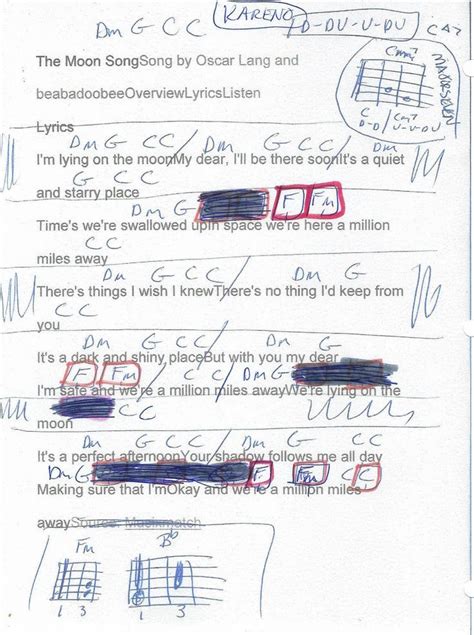 Dm G C C KARENO D-DU-U-DU CM7
The Moon SongSong by Oscar Lang and
Cmaj7 MAJOR SEVEN
beabadoobeeOverviewLyricsListen
C Cm7
D-D/U-U-DU
Lyrics
Dm G C C / Dm G C C / Dm
I'm lying on the moonMy dear, I'll be there soonIt's a quiet
G C C
and starry place
Dm G F Fm
Time's we're swallowed upIn space we're here a million
C C
miles away
Dm G C C / Dm G
There's things I wish I knewThere's no thing I'd keep from
C C
you
Dm G C C / Dm G
It's a dark and shiny placeBut with you my dear
F Fm / C C / Dm G
I'm safe and we're a million miles awayWe're lying on the
C C
moon
Dm G C C / Dm G C C
It's a perfect afternoonYour shadow follows me all day
Dm G F Fm C C
Making sure that I'mOkay and we're a million miles
awaySource: Musixmatch
Fm Bb
1 3 1 3